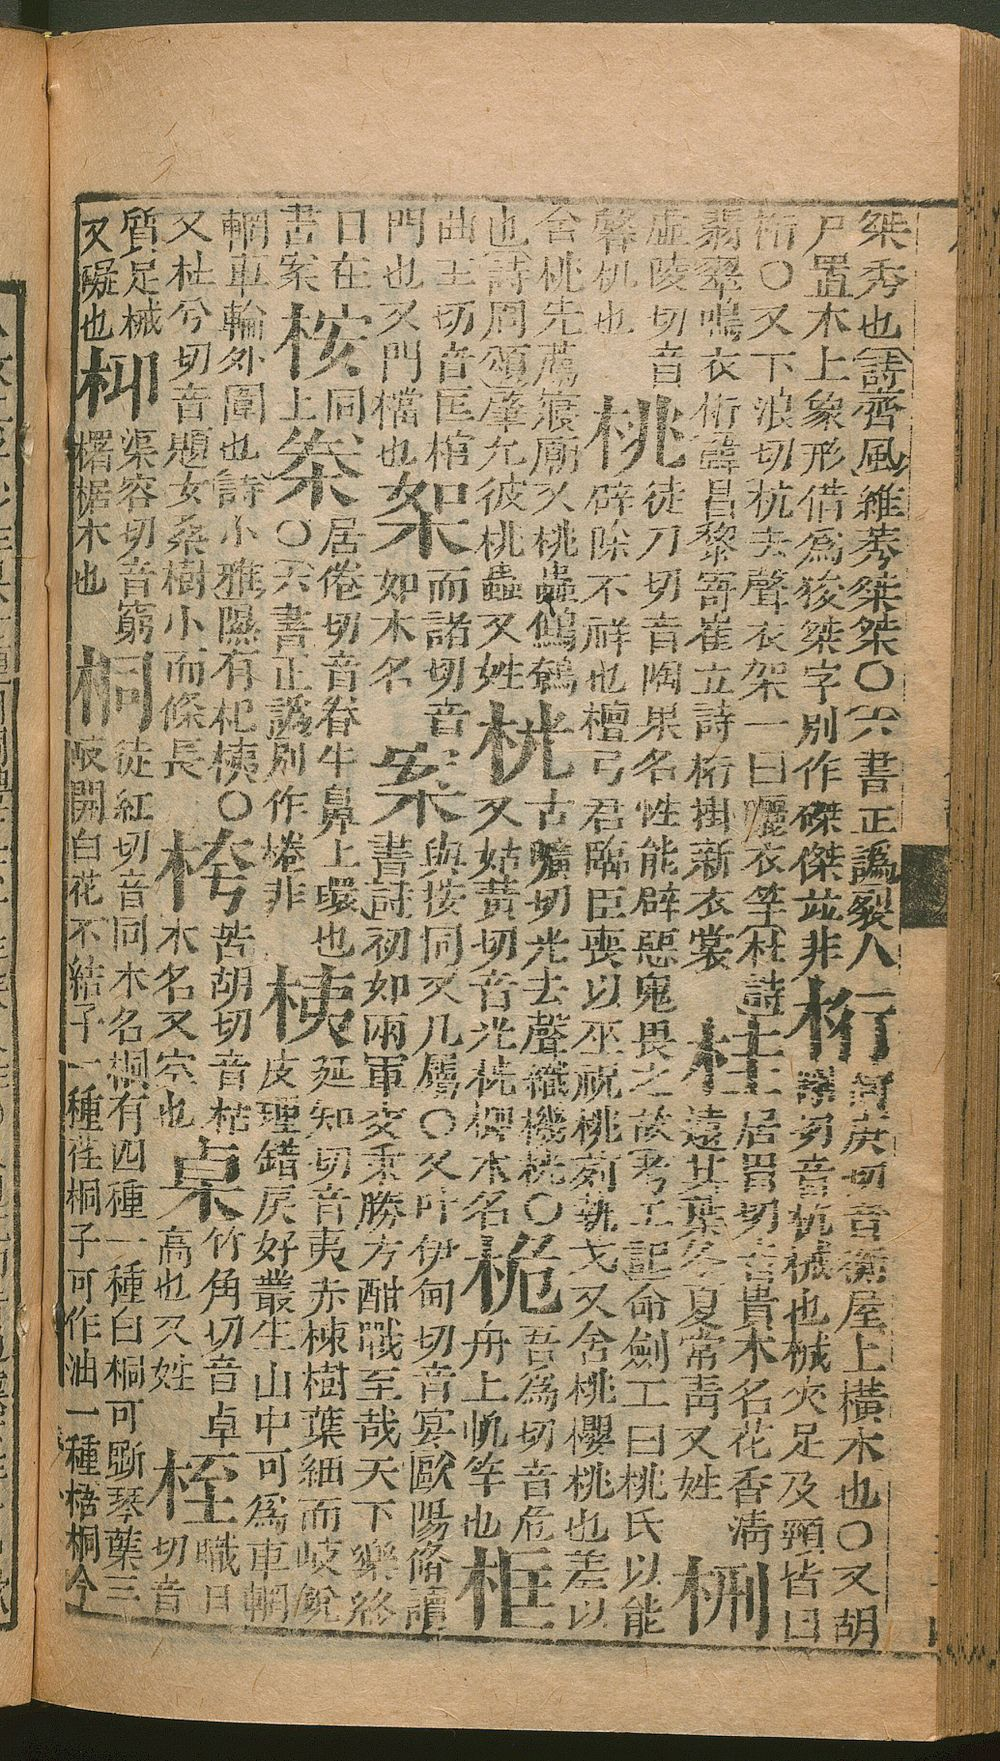 桀秀也詩齊風維莠桀桀〇六書正譌裂人
尸置木上象形借爲狻桀字別作磔傑並非
桁 何庚切音衡屋上橫木也〇又胡
切音杭械也械夾足及頸皆曰
桁〇又下浪切杭去聲衣架一曰曬衣竿杜詩
翡翠鳴衣桁韓昌黎寄崔立詩桁掛新衣裳
桂 居胃切音貴木名花香淸
遠其葉冬夏常靑又姓
栵
虛陵切音
馨机也
桃 徒刀切音陶果名性能辟惡鬼畏之故考工記命劍工曰桃氏以能
辟除不祥也檀弓君臨臣喪以巫祝桃茢執戈又含桃櫻桃也羞以
含桃先薦寢廟又桃蟲鷦鷯
也詩周頌肇允彼桃蟲又姓
桄 古曠切光去聲織機桄〇
又姑黃切音光桄榔木名
桅 吾爲切音危
舟上帆竿也
框
曲王切音匡棺
門也又門檔也
桇 而諸切音
如木名
案 與按同又几屬〇又叶伊甸切音宴歐陽脩讀
書詩初如兩軍交乘勝方酣戰至哉天下樂終
日在
書案
桉 同
上
桊 居倦切音眷牛鼻上環也
〇六書正譌別作棬非
桋 延知切音夷赤棟樹葉細而岐銳
皮理錯戾好叢生山中可爲車輞
輞車輪外圍也詩小雅隰有杞桋〇
又杜兮切音題女桑樹小而條長
桍 苦胡切音枯
木名又空也
桌 竹角切音卓
高也又姓
桎 職日
切音
質足械
又礙也
桏 渠容切音窮
椐木也
桐 徒紅切音同木名桐有四種一種白桐可斲琴葉三
岐開白花不結子一種荏桐子可作油一種梧桐今